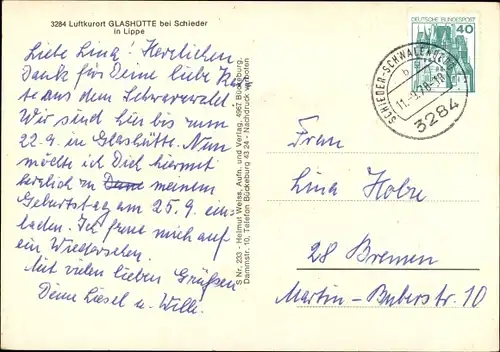 3284 Luftkurort GLASHÜTTE bei Schieder
in Lippe
Liebe Lina! Herzlichen
Dank für Deine liebe Kar
te aus dem Schwarzwald
Wir sind hier bis zum
22.9. in Glashütte. Nun
möchte ich Dich hiermit
herzlich zu Deine meinem
Geburtstag am 25.9. ein-
laden. Ich freue mich auf
ein Wiedersehen.
Mit vielen lieben Grüßen
Deine Liesel u. Willi.
S Nr. 233 - Helmut Weiss, Aufn. und Verlag, 4967 Bückeburg,
Dammstr. 10, Telefon Bückeburg 43 24 - Nachdruck verboten
DEUTSCHE BUNDESPOST
40
SCHIEDER-SCHWALENBERG
11.-9.78-18
3284
Frau
Lina Hobre
28 Bremen
Martin-Buberstr. 10